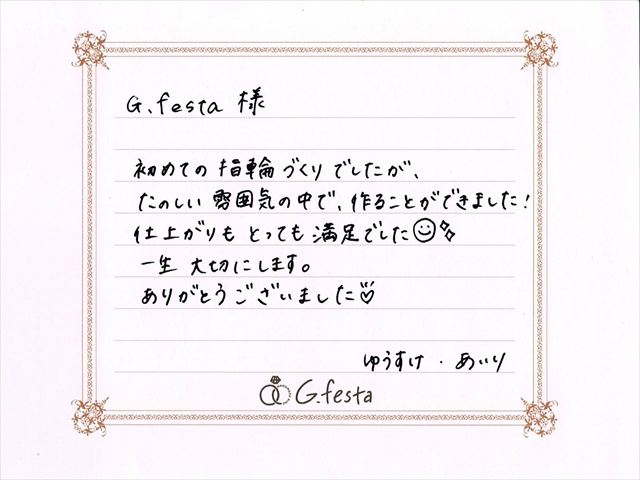 G.festa 様
初めての指輪づくりでしたが、
たのしい雰囲気の中で、作ることができました!
仕上がりもとっても満足でした
一生大切にします。
ありがとうございました♡
ゆうすけ・あいり
G.festa